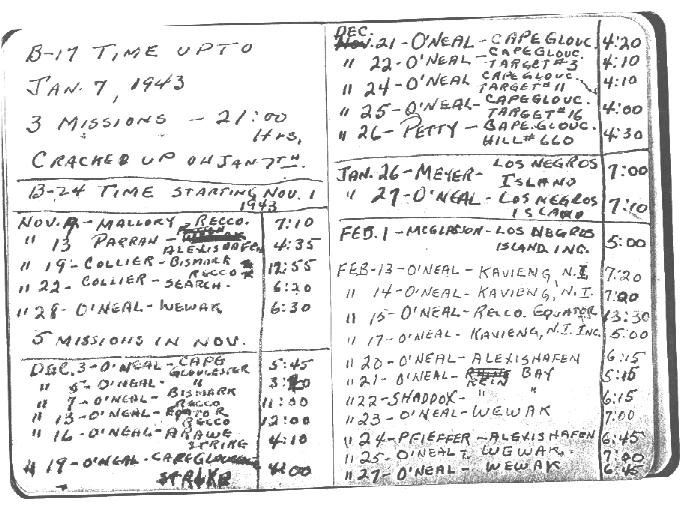 B-17 TIME UP TO
JAN. 7, 1943
3 MISSIONS - 21:00
HRS.
CRACKED UP ON JAN 7TH.
B-24 TIME STARTING NOV. 1
1943
NOV. - MALLORY - RECCO. 7:10
" 13 PARRAN - ALEXISHAFEN 4:35
" 19 - COLLIER - BISMARK RECCO 12:55
" 22 - COLLIER - SEARCH - 6:20
" 28 - O'NEAL - WEWAK 6:30
5 MISSIONS IN NOV.
DEC. 3 - O'NEAL - CAPE GLOUCESTER 5:45
" 5 - O'NEAL - "
" 7 - O'NEAL - BISMARK RECCO 11:00
" 13 - O'NEAL - RECCO 12:00
" 16 - O'NEAL - ARAWE STRIKE 4:10
" 19 - O'NEAL - CAPE STRIKE :00
DEC.
NOV. 21 - O'NEAL - CAPE GLOUC. 4:20
" 22 - O'NEAL - CAPE GLOUC. TARGET #3 4:10
" 24 - O'NEAL CAPE GLOUC. TARGET #11 4:10
" 25 - O'NEAL - CAPE GLOUC. TARGET #16 4:00
" 26 - PETTY - CAPE. GLOUC. HILL #660 4:30
JAN. 26 - MEYER - LOS NEGROS ISLAND 7:00
" 27 - O'NEAL - LOS NEGROS ISLAND 7:10
FEB. 1 - MCGLASION - LOS NEGROS ISLAND, INC. 5:00
FEB - 13 - O'NEAL - KAVIENG, N.I 7:20
" 14 - O'NEAL - KAVIENG, N.I. 7:20
" 15 - O'NEAL - RECCO. EQUATOR 13:30
" 17 - O'NEAL - KAVIENG, N.I. INC. 5:00
" 20 - O'NEAL - ALEXISHAFEN 6:15
" 21 - O'NEAL - REIN BAY 5:15
" 22 - SHADDOX - " " 6:15
" 23 - O'NEAL - WEWAK 7:00
" 24 - PFIEFFER - ALEXISHAFEN 6:45
" 25 - O'NEAL - WEWAK. 7:00
" 27 - O'NEAL - WEWAK 6:45